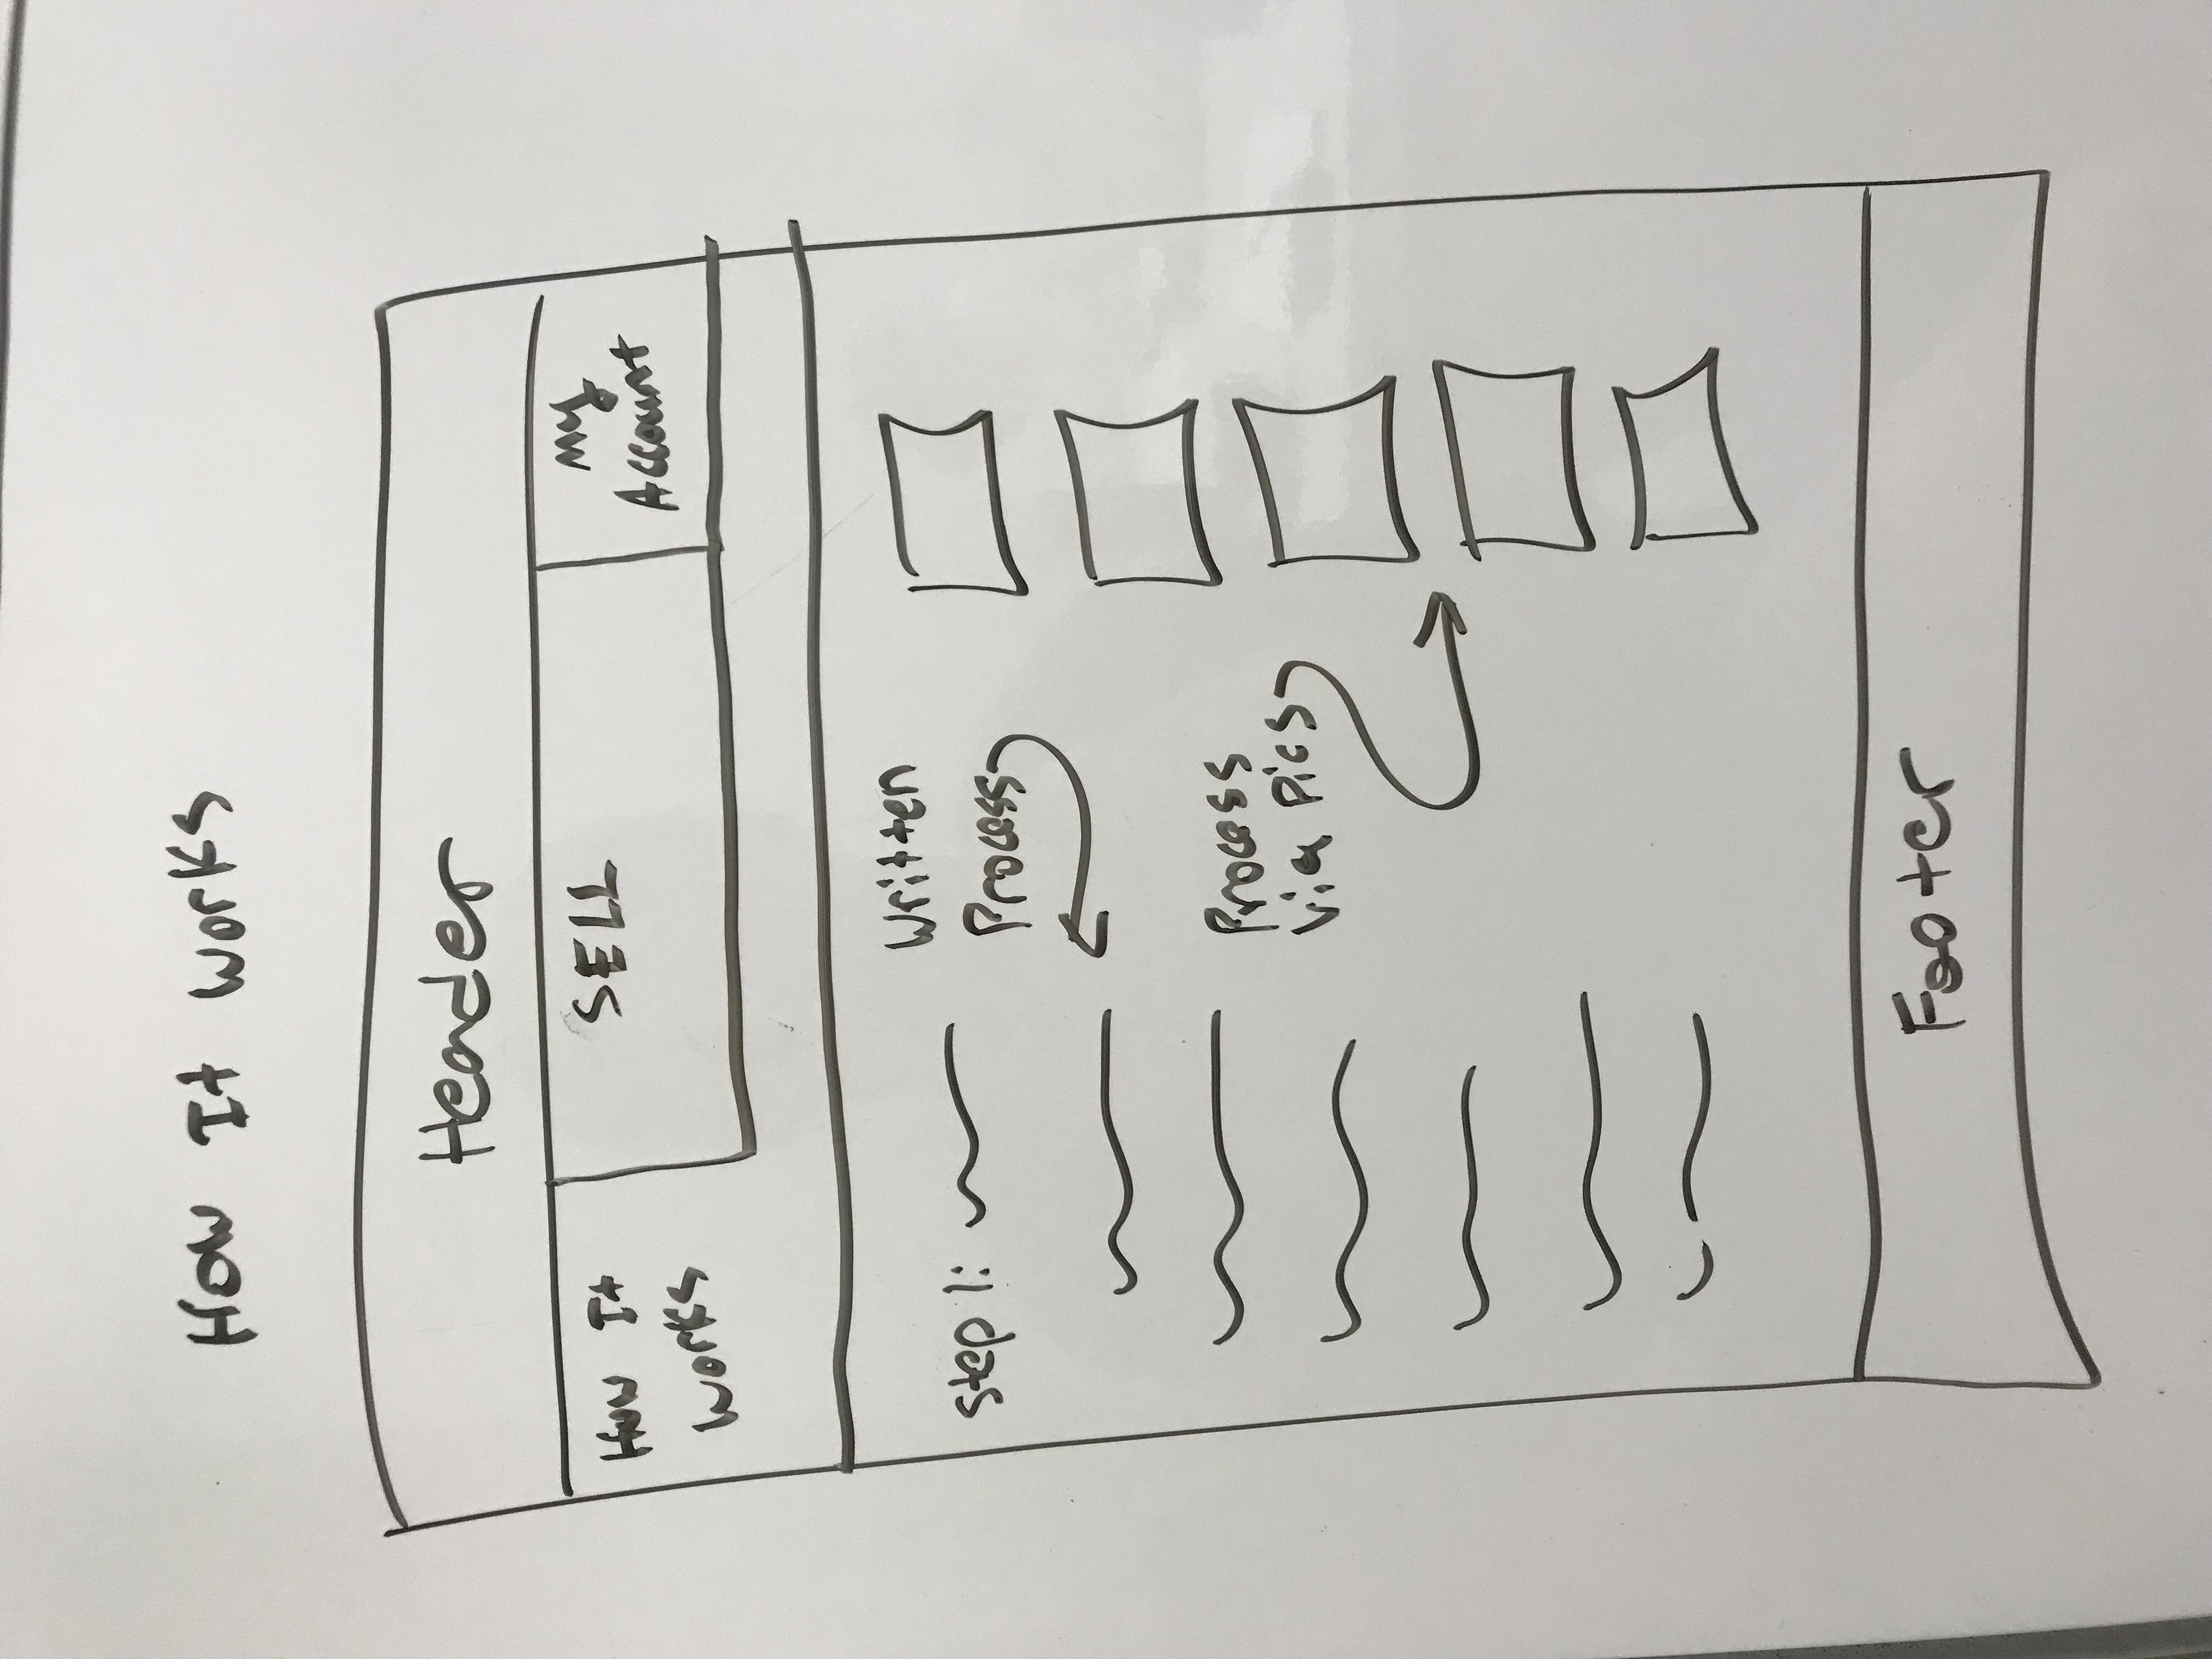 How It Works
Header
How It
Works
SELL
My
Account
Step 1:
Written
Process
Process
Via Pics
Footer